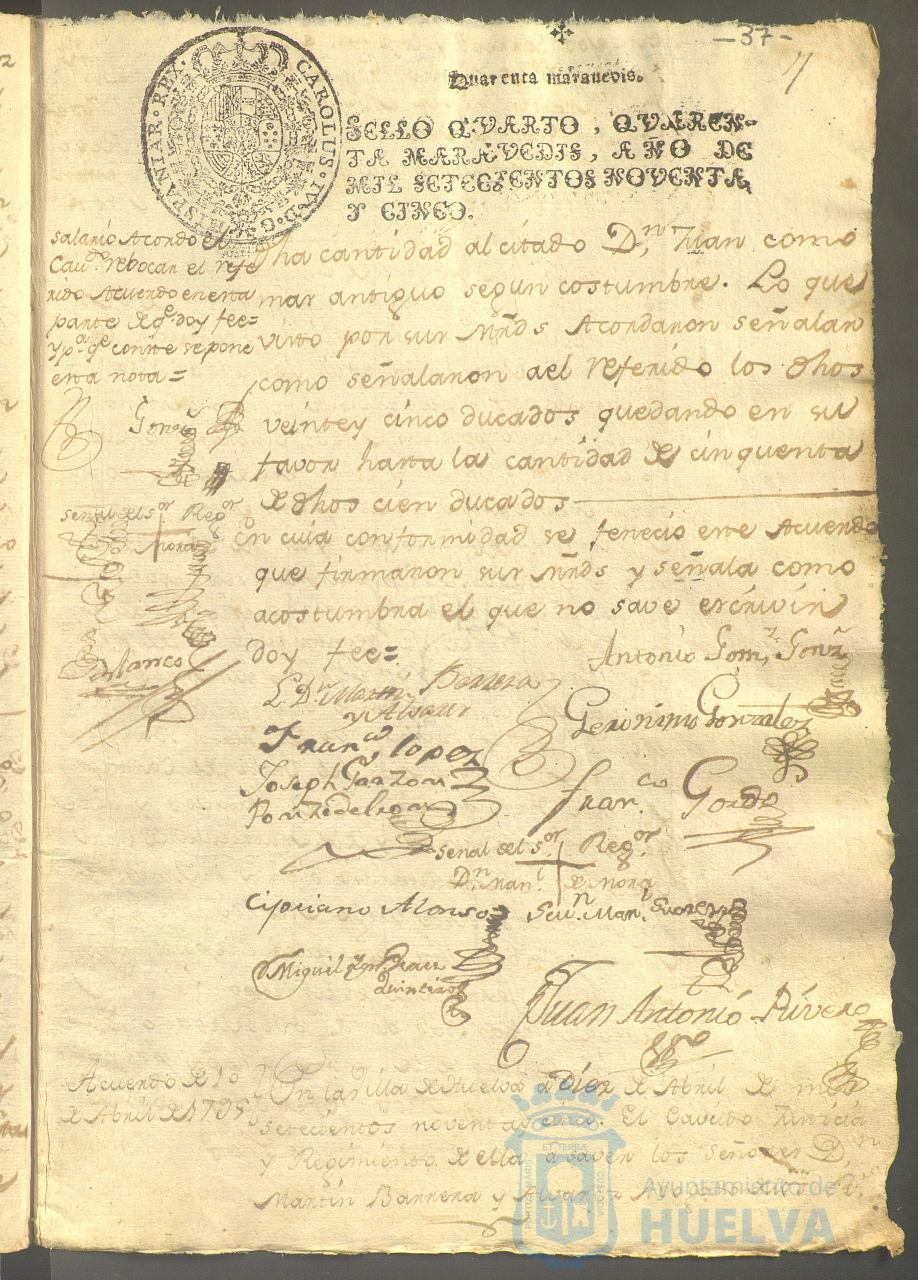 -37-
7
Quarenta maravedis.
HISPANIAR·REX· CAROLUS·IV·D·G·
SELLO QVARTO, QVAREN-
TA MARAVEDIS, AÑO DE
MIL SETECIENTOS NOVENTA,
Y CINCO.
salario Acordó el
Cavdo rebocar el refe
rido Acuerdo en esta
parte de qe doy fee=
y pa qe conste se pone
esta nota=
Gonz
señal del sor Regor
Mora
Blanco
dha cantidad al citado Dn Juan como
mas antiguo segun costumbre. Lo que
visto por sus Mrds Acordaron señalar
como señalaron ael referido los dhos
veinte y cinco ducados quedando en su
favor hasta la cantidad de cinquenta
de dhos cien ducados
En cuia conformidad se fenecio este Acuerdo
que firmaron sus Mrds y señala como
acostumbra el que no save escrivir
doy fee=
Antonio Gomz Gonz
L. Dn Martin Barrera
y Alvarez
Geronimo Gonzalez
Franco lopez
Joseph Garzon
Franco Gordo
señal del sor Regor
Dn Manl de Mora
Cipriano Alonso
Sevn Manl Suarez
Miguel
Quintero
Juan Antonio Rivero
Acuerdo de 10
de Abril de 1795
En la villa de Huelva a diez de Abril de mil
setecientos noventa y cinco: El Cavildo Justicia
y Regimiento de ella, a saver los Señores Dn
Martin Barrera y Alvarez Abogado
Ayuntamiento de
HUELVA